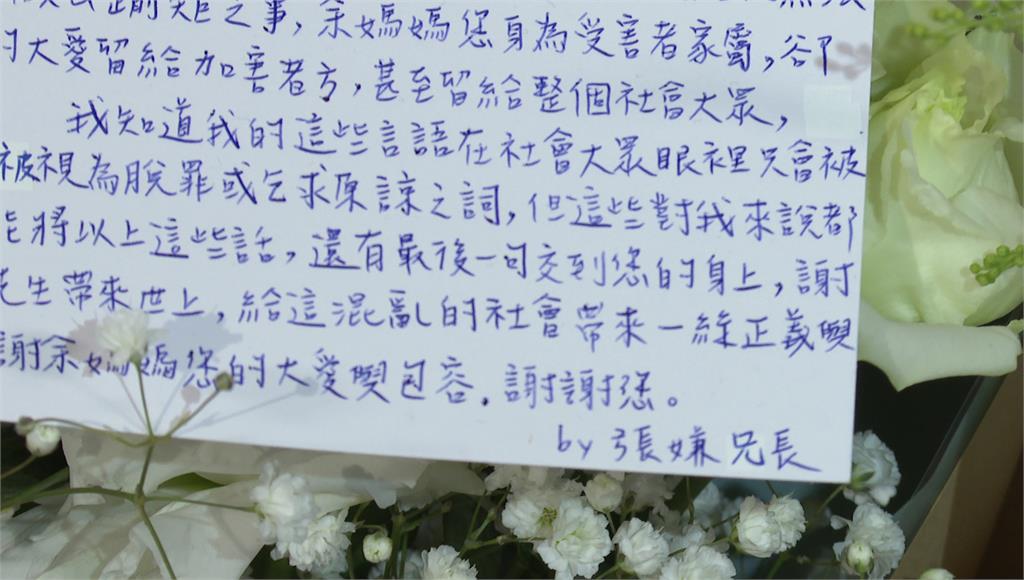 踰矩之事,余媽媽您身為受害者家屬,卻
的大愛留給加害者方,甚至留給整個社會大眾,
我知道我的這些言語在社會大眾眼裡只會被
被視為脫罪或乞求原諒之詞,但這些對我來說都
將以上這些話,還有最後一句交到您的身上,謝
先生帶來世上,給這混亂的社會帶來一線正義與
謝余媽媽您的大愛與包容.謝謝您。
by 張嫌兄長